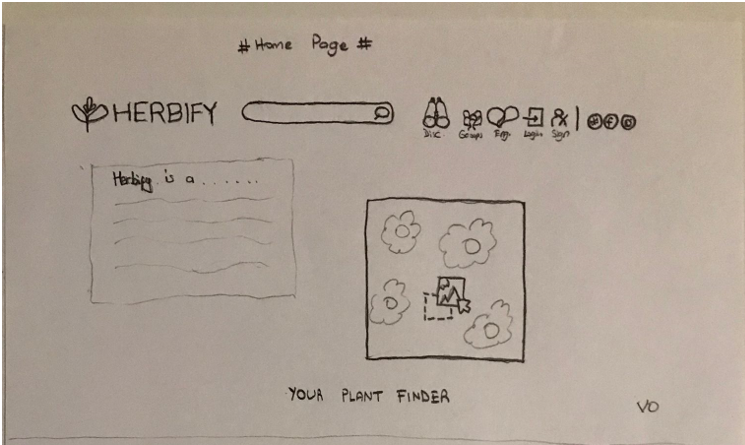 # Home Page #
HERBIFY
Disc. Groups Eng. Login Sign
Herbify is a .......
YOUR PLANT FINDER
VO